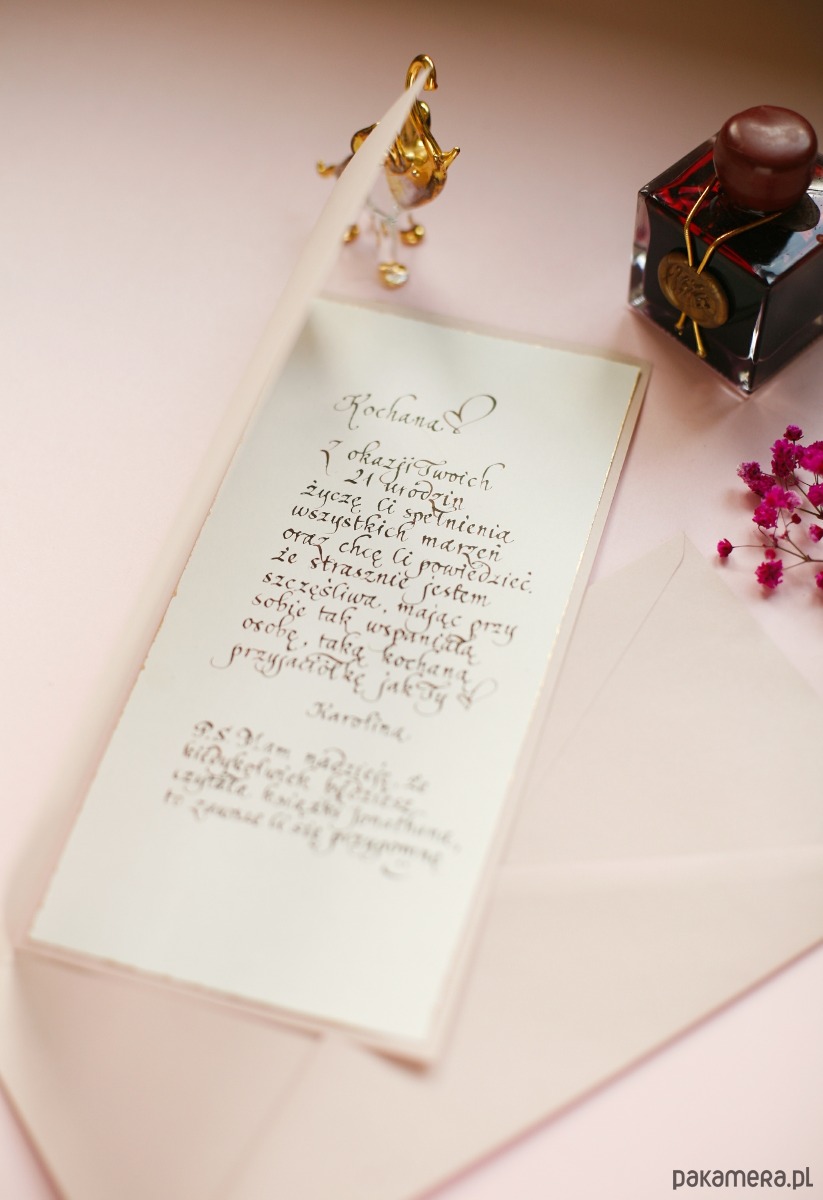 Kochana
Z okazji Twoich
21 urodzin
życzę Ci spełnienia
wszystkich marzeń
oraz chcę Ci powiedzieć,
że strasznie jestem
szczęśliwa, mając przy
sobie tak wspaniałą
osobę, taką kochaną
przyjaciółkę jak Ty
Karolina
P.S. Mam nadzieję, że
kiedykolwiek będziesz
czytała książki Jonathana,
to zawsze Ci się przypomnę
pakamera.pl